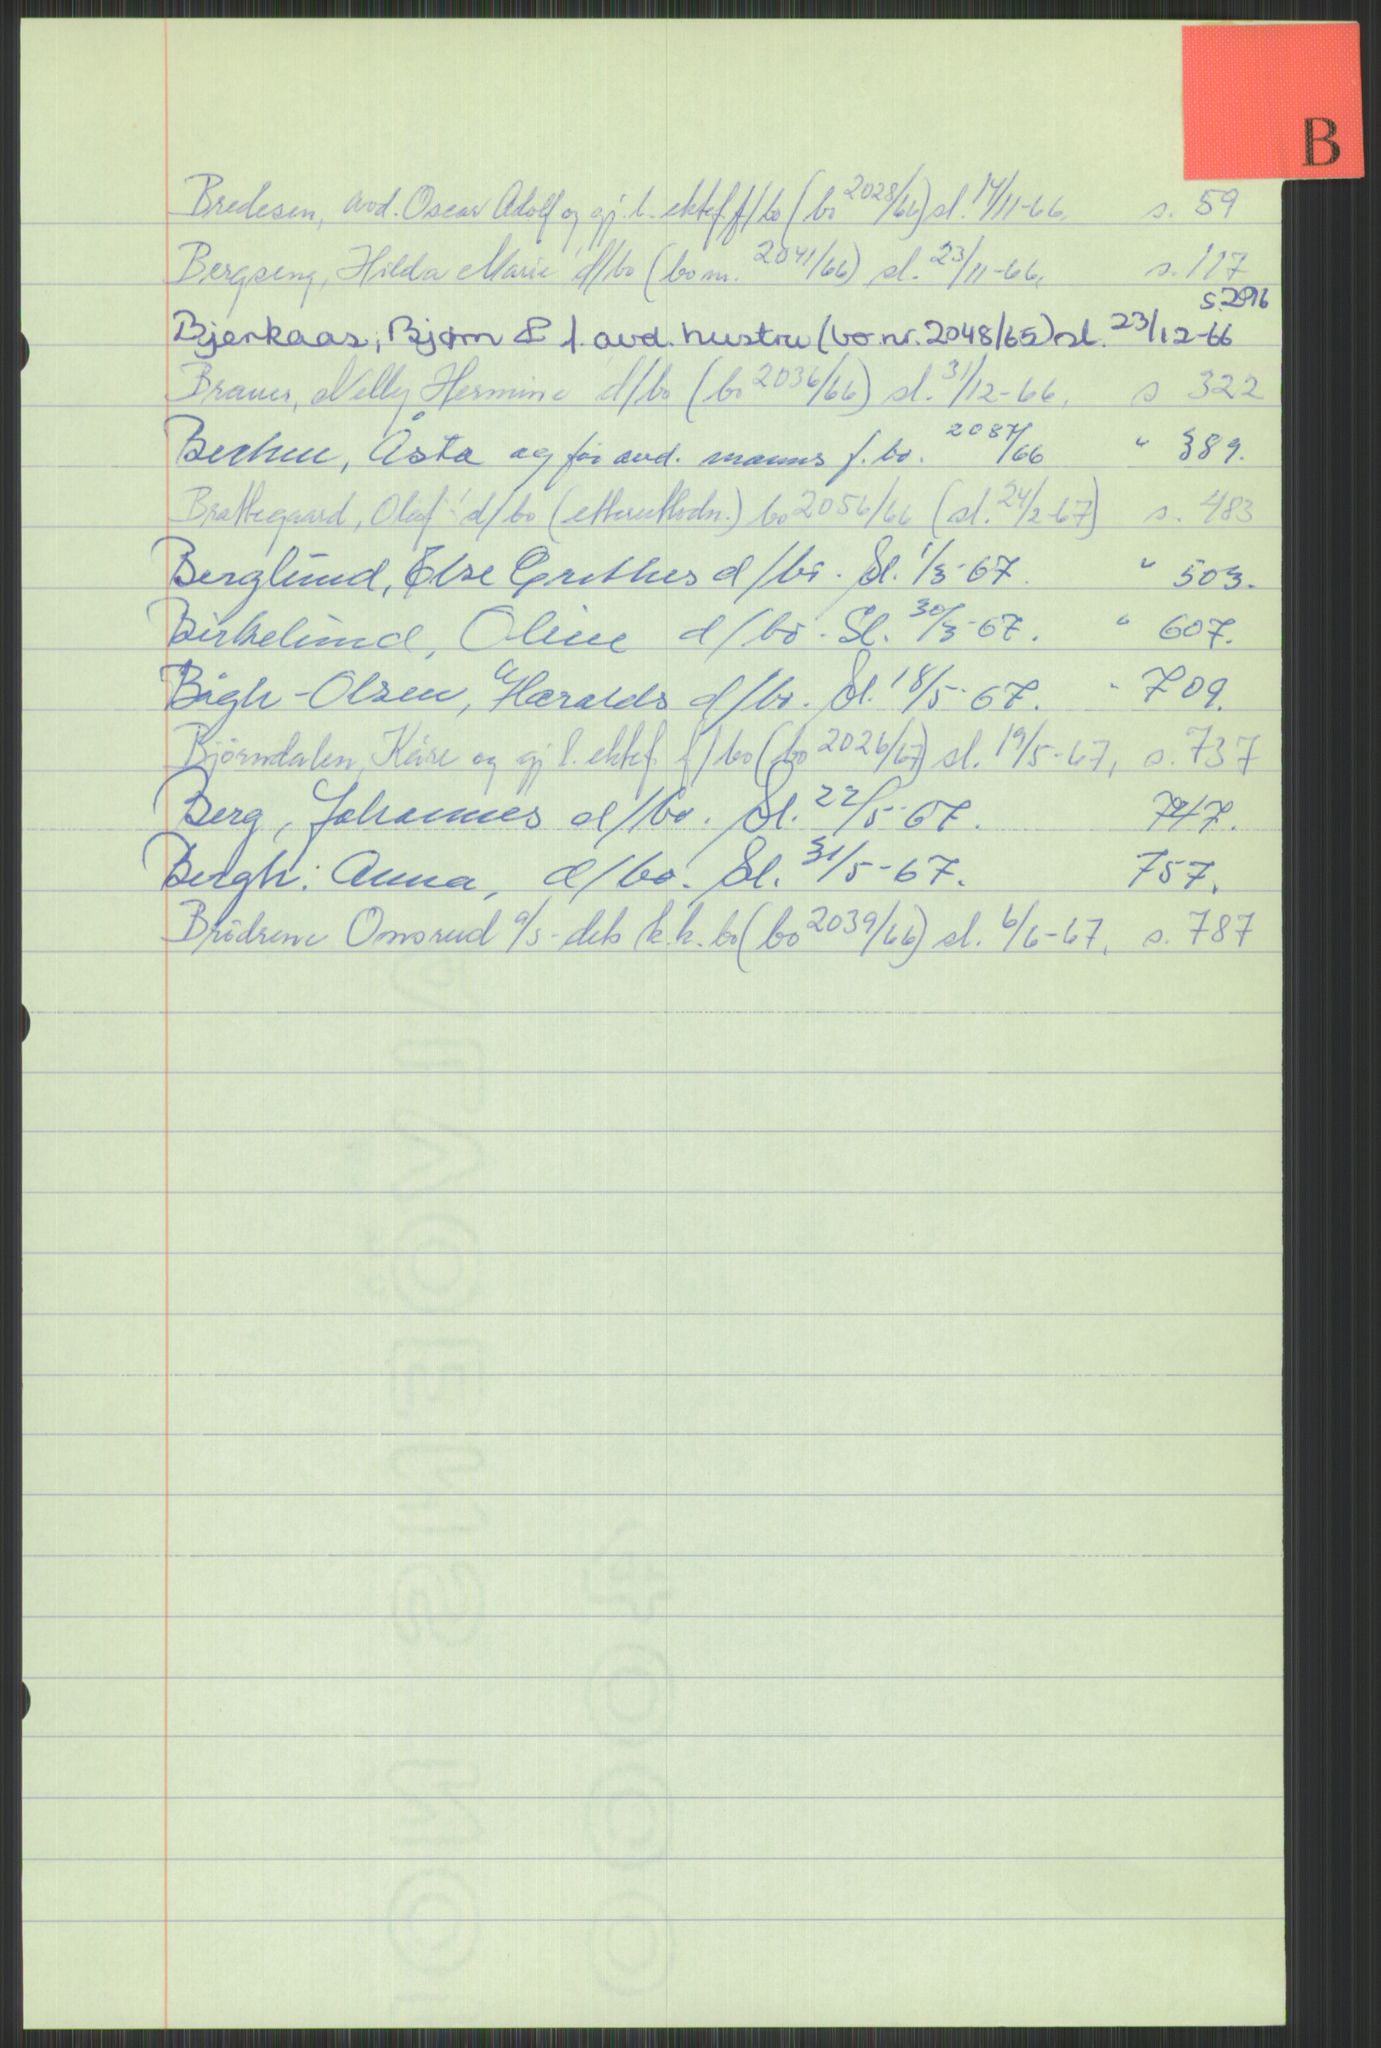 B
Bredesen, avd. Oscar Adolf og gj. l. ektef. f/bo (bo 2028/66) sl. 14/11-66, s. 59
Bergseng, Hilda Marie d/bo (bo nr. 2041/66) sl. 23/11-66, s. 117
s. 296
Bjerkaas, Bjørn & f. avd. hustru (bo nr. 2048/65) sl. 23/12-66
Brauer, Nelly Hermine d/bo (bo 2036/66) sl. 31/12-66, s 322
Åsta og før avd. manns f. bo. 2087/66 " 389.
Brattegaard, Olaf d/bo (etterutlodn.) bo 2056/66 (sl. 24/2-67) s. 483
Berglund, Else Grethes d/bo. Sl. 1/3-67. " 503.
Birkelund, Oline d/bo. Sl. 30/3-67. " 607.
Bágh-Olsen, Haralds d/bo. Sl. 18/5-67. " 709.
Bjørndalen, Kåre og gj. l. ektef. f/bo (bo 2026/67) sl. 19/5-67, s. 737
Berg, Johannes d/bo. Sl. 22/5-67. 747.
Bergh: Anna, d/bo. Sl. 31/5-67. 757.
Brödrene Omsrud a/s - dets k.k. bo (bo 2039/66) sl. 6/6-67, s. 787